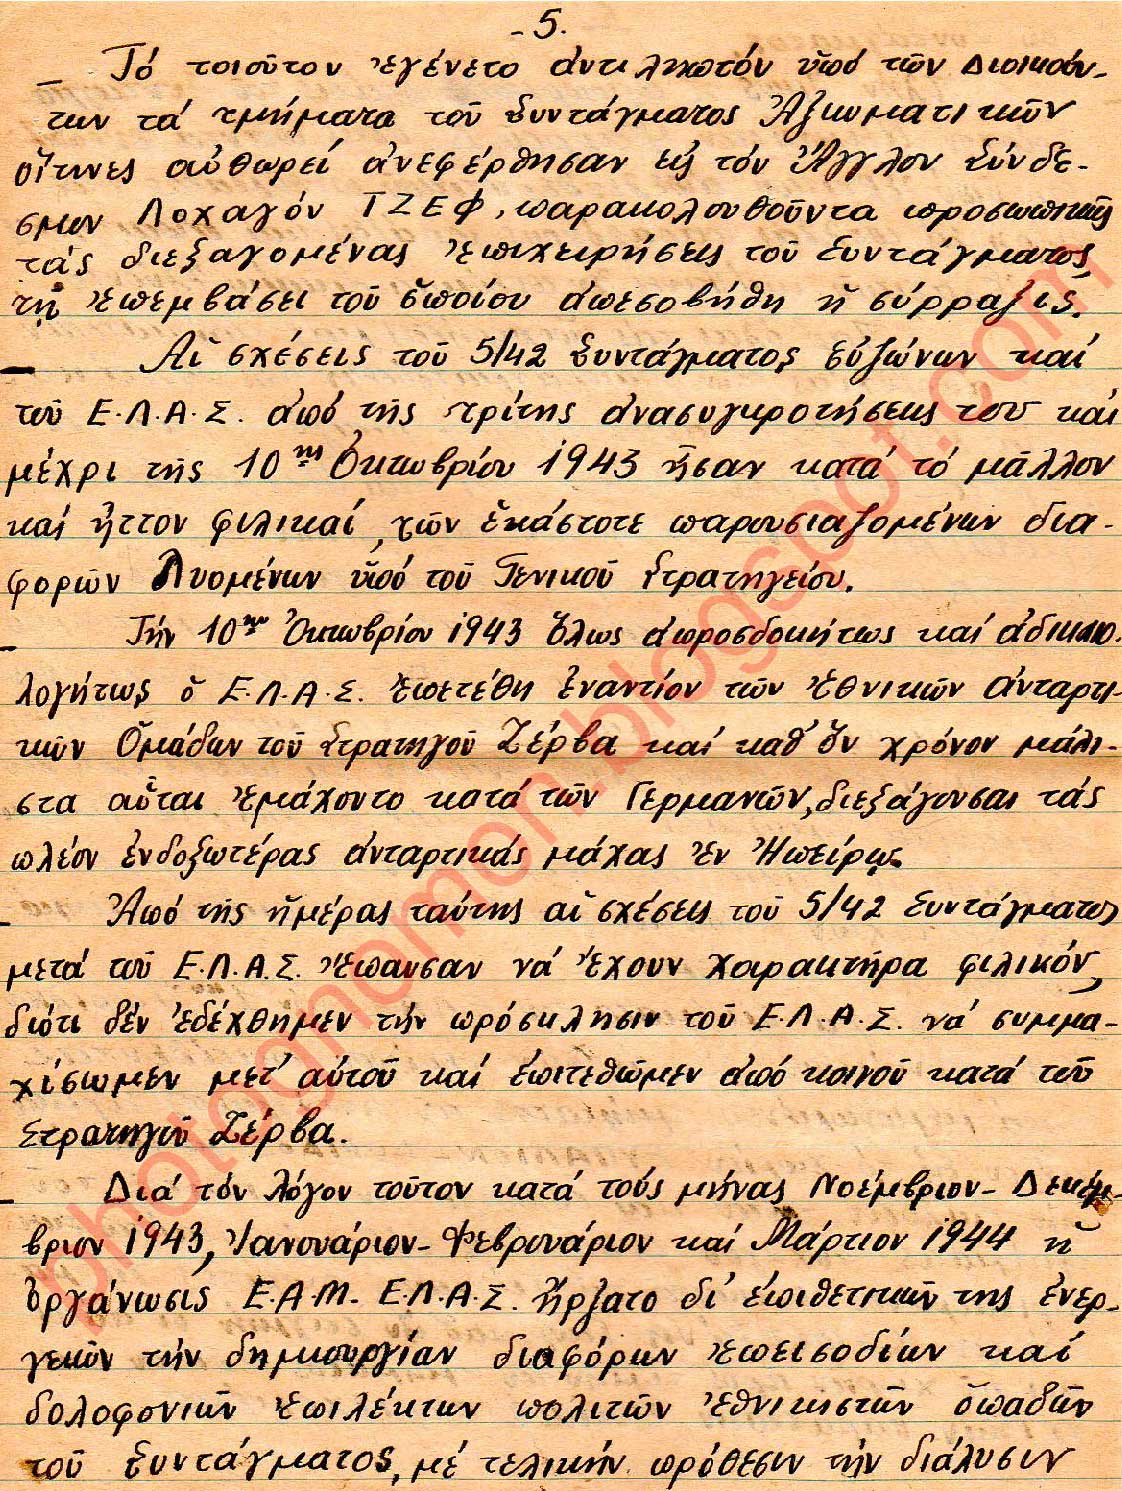 - 5.
- Τό τοιοῦτον ἐγένετο ἀντιληπτόν ὑπό τῶν Διοικούν-
των τά τμήματα τοῦ Συντάγματος Ἀξιωματικῶν
οἵτινες αὐθωρεί ἀνεφέρθησαν εἰς τόν Ἄγγλον Σύνδε-
σμον Λοχαγόν ΤΖΕΦ, παρακολουθοῦντα προσωπικῶς
τάς διεξαγομένας ἐπιχειρήσεις τοῦ Συντάγματος,
τῇ ἐπεμβάσει τοῦ ὁποίου ἀπεσοβήθη ἡ σύρραξις.
- Αἱ σχέσεις τοῦ 5/42 Συντάγματος εὐζώνων καί
τοῦ Ε.Λ.Α.Σ. ἀπό τῆς τρίτης ἀνασυγκροτήσεως του καί
μέχρι τῆς 10ης Ὀκτωβρίου 1943 ἦσαν κατά τό μᾶλλον
καί ἧττον φιλικαί, τῶν ἑκάστοτε παρουσιαζομένων δια-
φορῶν λυομένων ὑπό τοῦ Γενικοῦ Στρατηγείου.
- Τήν 10ην Ὀκτωβρίου 1943 ὅλως ἀπροσδοκήτως καί ἀδικαιο-
λογήτως ὁ Ε.Λ.Α.Σ. ἐπετέθη ἐναντίον τῶν ἐθνικῶν ἀνταρτι-
κῶν Ὁμάδων τοῦ Στρατηγοῦ Ζέρβα καί καθ' ὅν χρόνον μάλι-
στα αὗται ἐμάχοντο κατά τῶν Γερμανῶν, διεξάγουσαι τάς
πλέον ἐνδοξωτέρας ἀνταρτικάς μάχας ἐν Ἠπείρῳ.
- Ἀπό τῆς ἡμέρας ταύτης αἱ σχέσεις τοῦ 5/42 Συντάγματος
μετά τοῦ Ε.Λ.Α.Σ. ἔπαυσαν νά ἔχουν χαρακτῆρα φιλικόν,
διότι δέν ἐδέχθημεν τήν πρόσκλησιν τοῦ Ε.Λ.Α.Σ. νά συμμα-
χίσωμεν μετ' αὐτοῦ καί ἐπιτεθῶμεν ἀπό κοινοῦ κατά τοῦ
Στρατηγοῦ Ζέρβα.
- Διά τόν λόγον τοῦτον κατά τούς μῆνας Νοέμβριον - Δεκέμ-
βριον 1943, Ἰανουάριον - Φεβρουάριον καί Μάρτιον 1944 ἡ
ὀργάνωσις Ε.Α.Μ. Ε.Λ.Α.Σ. ἤρξατο δι' ἐπιθετικῶν της ἐνερ-
γειῶν τήν δημιουργίαν διαφόρων ἐπεισοδίων καί
δολοφονιῶν ἐπιλέκτων πολιτῶν ἐθνικιστῶν ὀπαδῶν
τοῦ Συντάγματος, μέ τελικήν πρόθεσιν τήν διάλυσιν
photognomon.blogspot.com